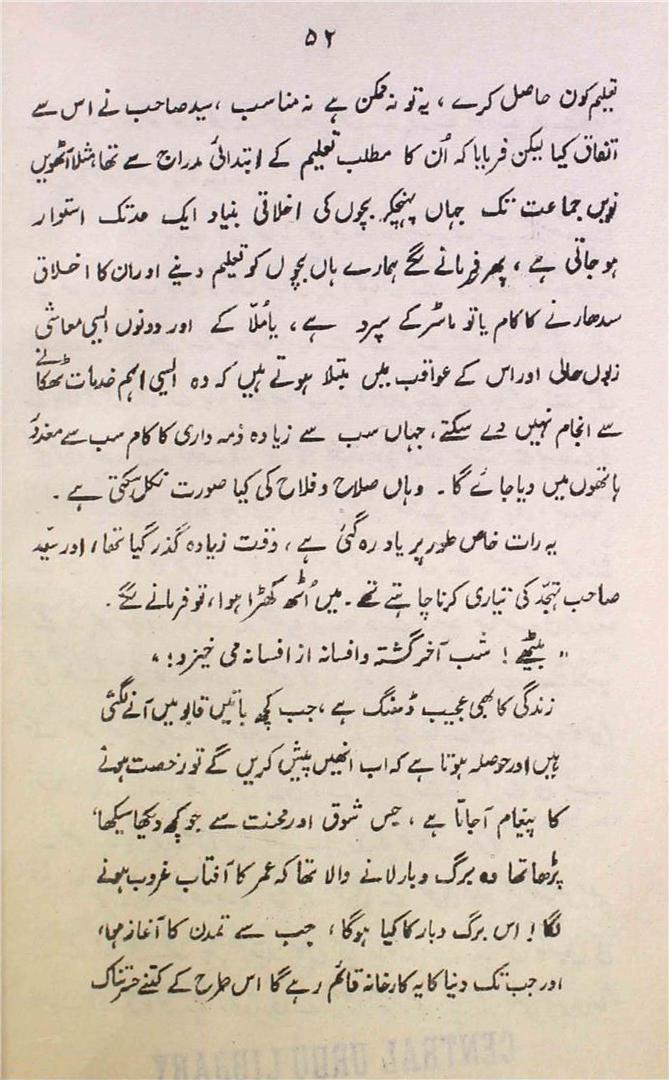 ۵۲
تعلیم کون حاصل کرے ، یہ تو نہ ممکن ہے نہ مناسب ، سید صاحب نے اس سے
اتفاق کیا لیکن فرمایا کہ اُن کا مطلب تعلیم کے ابتدائی مدراج سے تھا، مثلاً آٹھویں
نویں جماعت تک جہاں پہنچکر بچوں کی اخلاقی بنیاد ایک حد تک استوار
ہو جاتی ہے ، پھر فرمانے لگے ہمارے ہاں بچوں کو تعلیم دینے اور ان کا اخلاق
سدھارنے کا کام یا تو ماسٹر کے سپرد ہے ، یا مُلّا کے اور دونوں ایسی معاشی
زبوں حالی اور اس کے عواقب میں مبتلا ہوتے ہیں کہ وہ ایسی اہم خدمات ٹھکانے
سے انجام نہیں دے سکتے، جہاں سب سے زیادہ ذمہ داری کا کام سب سے معذور
ہاتھوں میں دیا جائے گا ۔ وہاں صلاح و فلاح کی کیا صورت نکل سکتی ہے ۔
یہ رات خاص طور پر یاد رہ گئی ہے ، وقت زیادہ گذر گیا تھا، اور سیّد
صاحب تہجّد کی تیاری کرنا چاہتے تھے ۔ میں اُٹھ کھڑا ہوا، تو فرمانے لگے ۔
" بیٹھیے ! شب آخر گشتہ و افسانہ از افسانہ می خیزد ! "
زندگی کا بھی عجیب ڈھنگ ہے ، جب کچھ باتیں قابو میں آنے لگتی
ہیں اور حوصلہ ہوتا ہے کہ اب انھیں پیش کریں گے تو رخصت ہونے
کا پیغام آجاتا ہے ، جس شوق اور محنت سے جو کچھ دیکھا سیکھا،
پڑھا تھا وہ برگ و بار لانے والا تھا کہ عمر کا آفتاب غروب ہونے
لگا ! اس برگ و بار کا کیا ہوگا ، جب سے تمدن کا آغاز ہوا،
اور جب تک دنیا کا یہ کارخانہ قائم رہے گا اس طرح کے کتنے حسرتناک
CENTRAL URDU LIBRARY